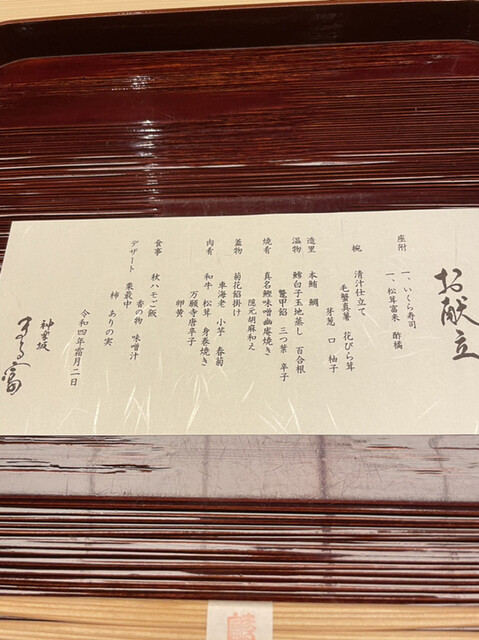 お献立
座附
一、いくら寿司
一、松茸富来 酢橘
椀 清汁仕立て
毛蟹真薯 花びら茸
芽葱 口 柚子
造里 本鮪 鯛
温物 鱈白子玉地蒸し 百合根
鼈甲餡 三つ葉 辛子
焼肴 真名鰹味噌幽庵焼き
隠元胡麻和え
蓋物 菊花餡掛け
車海老 小芋 春菊
肉肴 和牛 松茸 身巻焼き
万願寺唐辛子
卵黄
食事 秋ハモご飯
香の物 味噌汁
デザート 栗最中
柿 ありの実
令和四年霜月二日
神楽坂